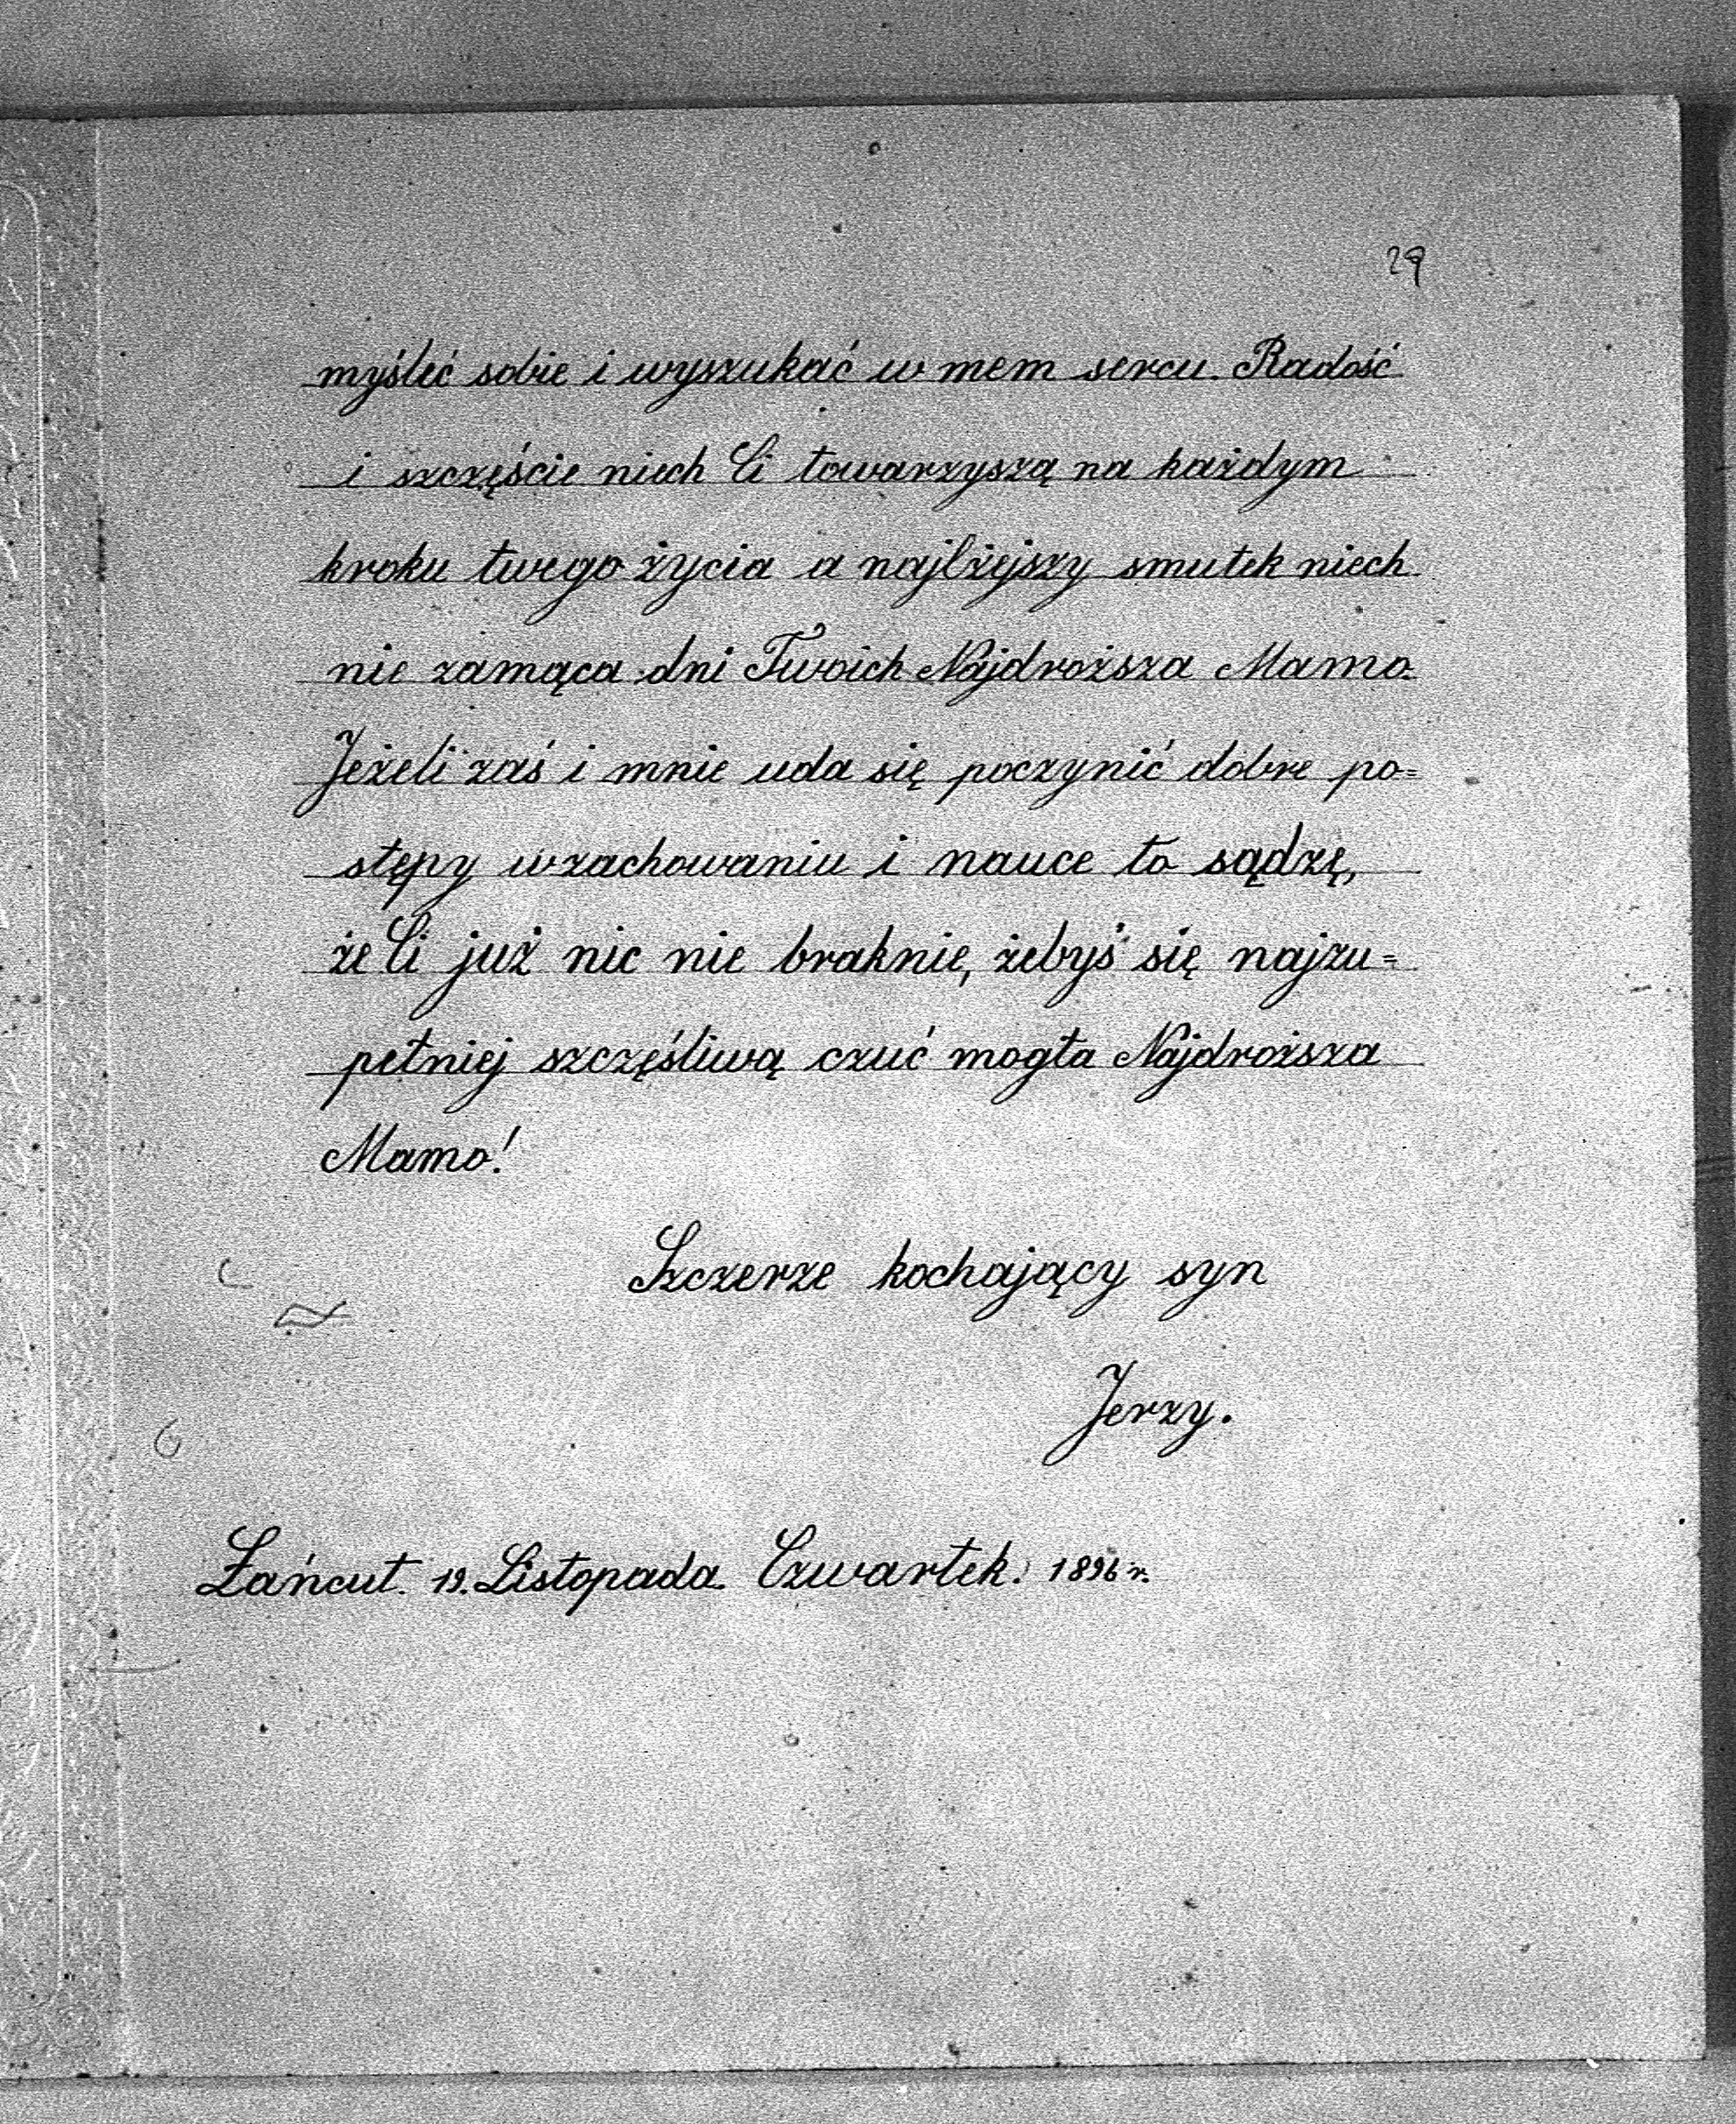 29
myśleć sobie i wyszukać w mem sercu. Radość
i szczęście niech Ci towarzyszą na każdym
kroku twego życia a najlżejszy smutek niech
nie zamąca dni Twoich Najdroższa Mamo.
Jeżeli zaś i mnie uda się poczynić dobre po=
stępy w zachowaniu i nauce to sądzę,
że Ci już nic nie braknie, żebyś się najzu=
pełniej szczęśliwą czuć mogła Najdroższa
Mamo!
Szczerze kochający syn
Jerzy.
Łańcut. 19. Listopada. Czwartek. 1896 r.